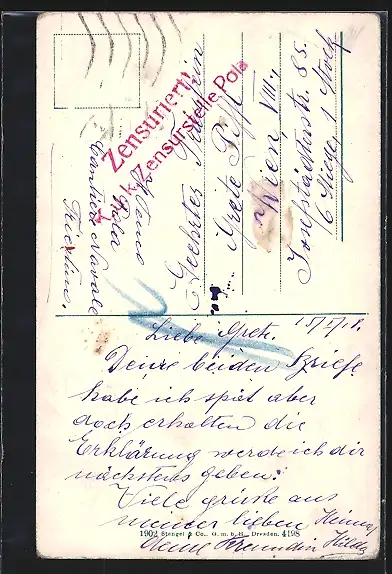 Zensuriert!
k. k. Zensurstelle Pola
Pola
Cantiere Navale
Triestino.
Geehrtes Fräulein
Grete
Wien, VIII.,
Josefstädterstr. 85.
6 Stiege, 1 Stock
Liebe Grete.
Deine beiden Briefe
habe ich spät aber
doch erhalten die
Erklärung werde ich dir
nächstens geben.
Viele grüße aus
meiner lieben Heimat
Deine Freundin Hilda
1902 Stengel & Co., G. m. b. H., Dresden. 4198